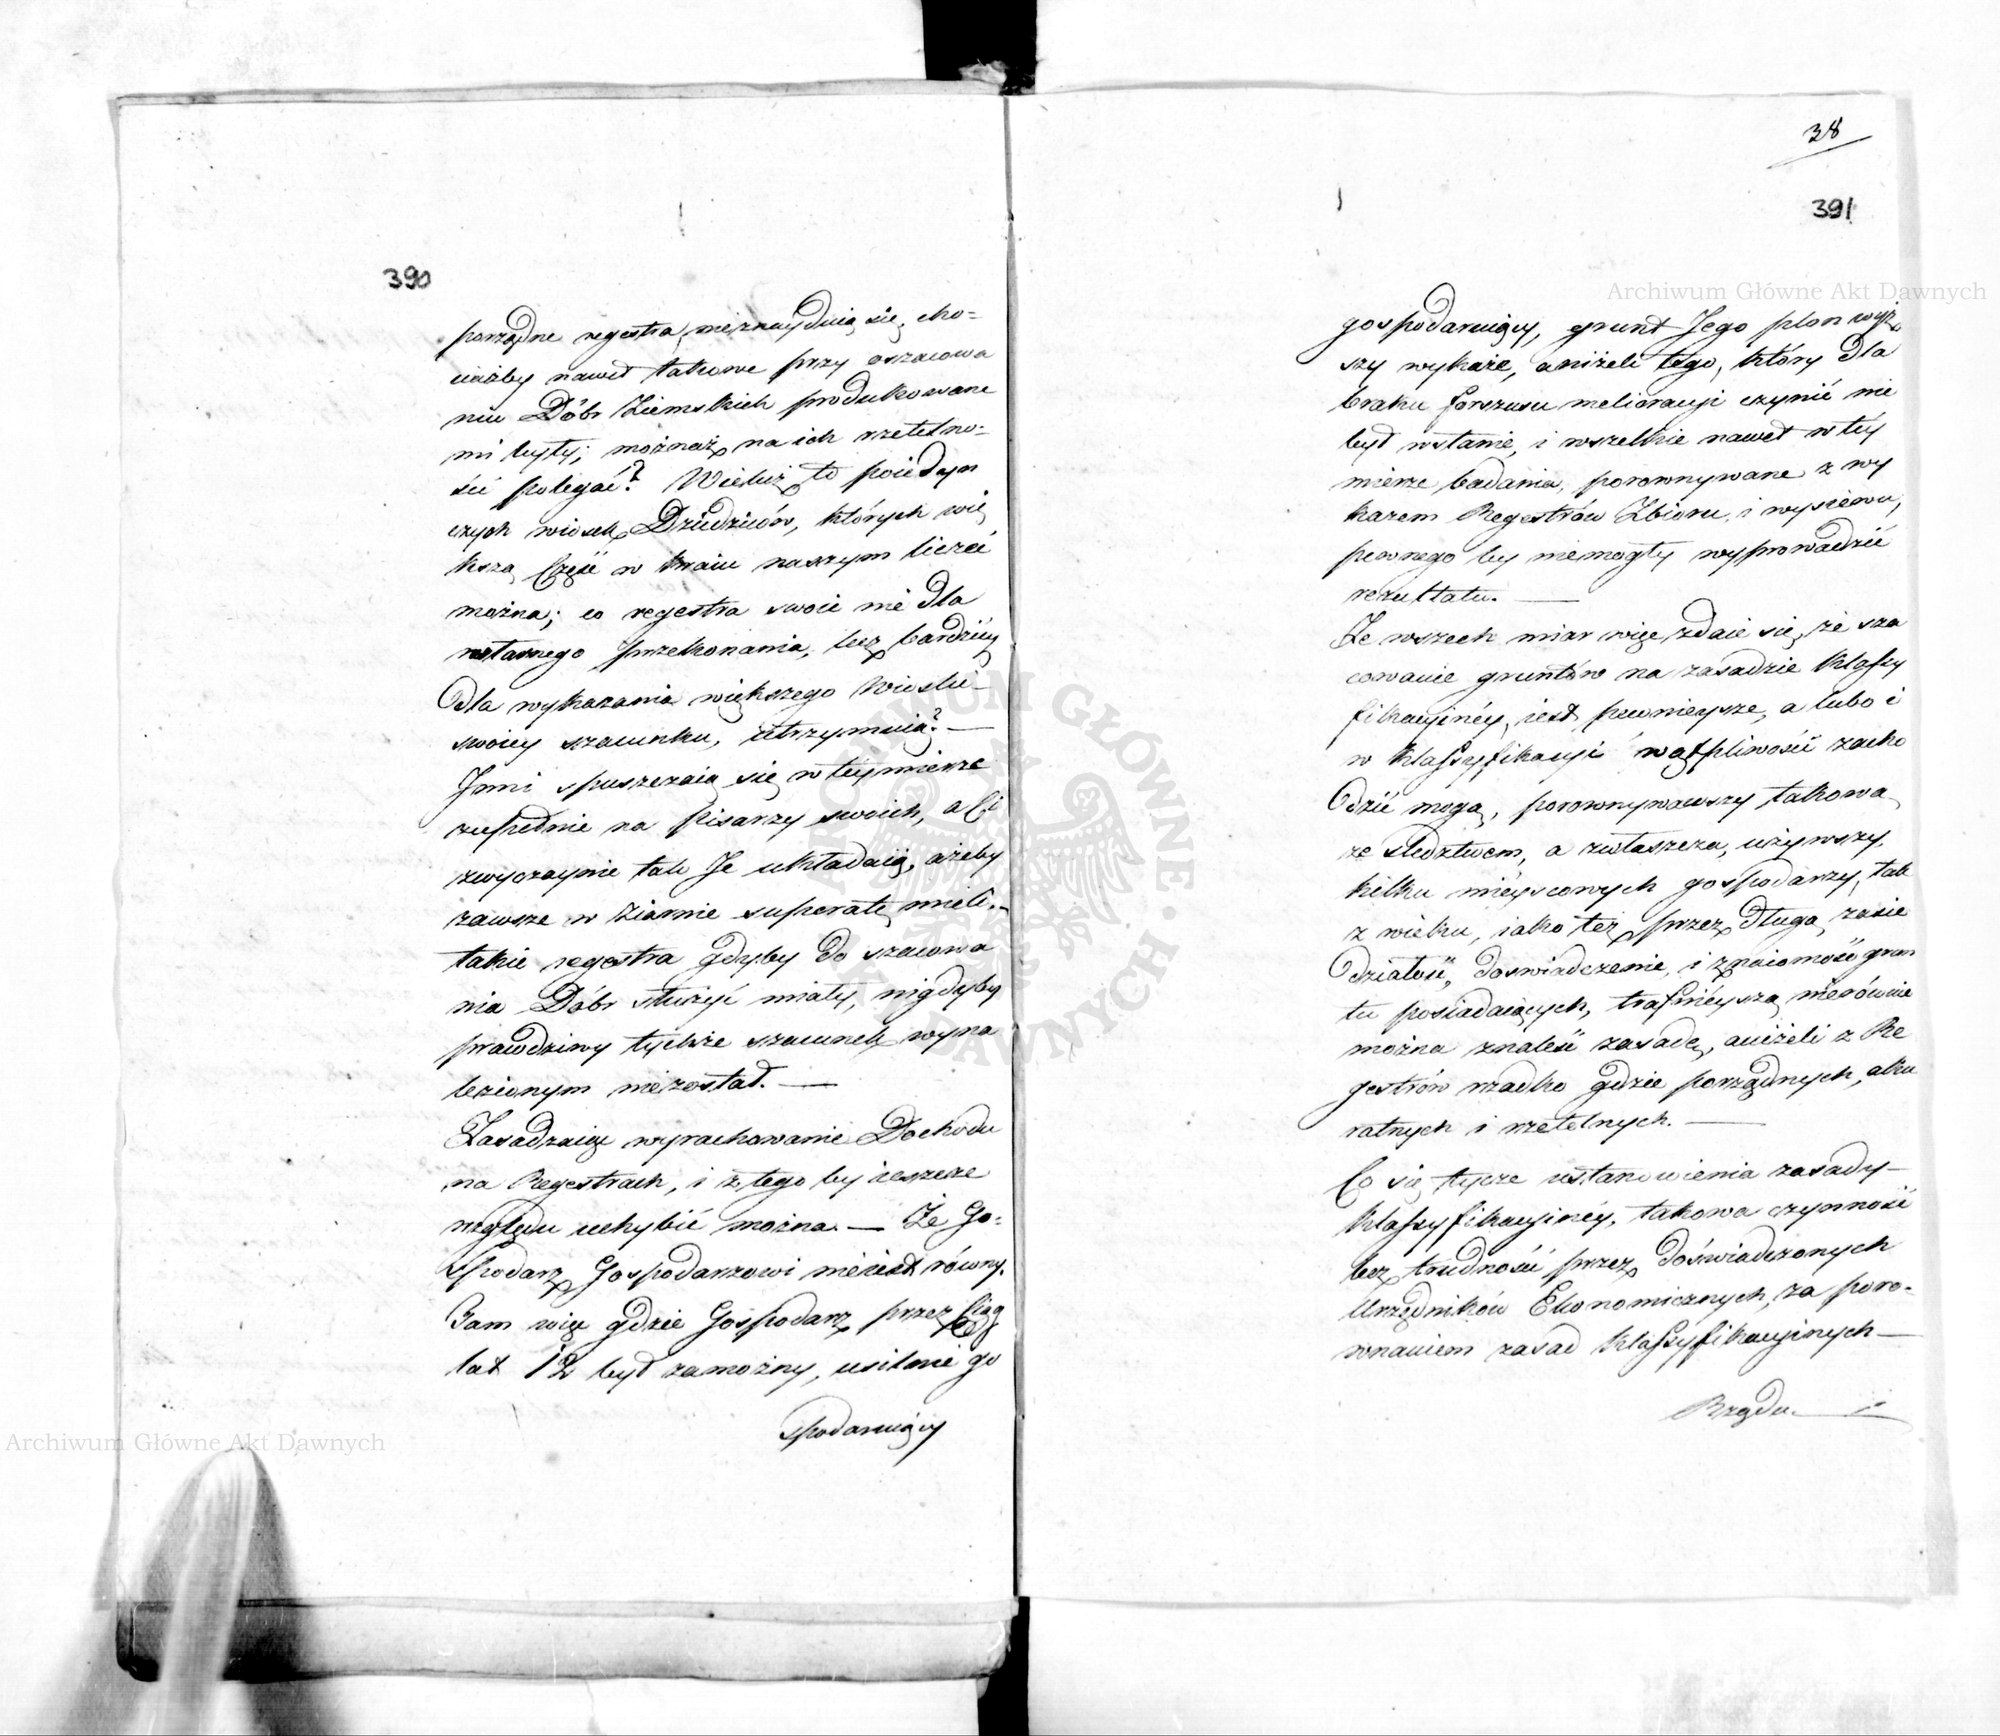 390
porządne regestra, nieznaydują się, cho-
ciażby nawet takowe przy oszacowa
niu Dóbr Ziemskich produkowane
mi były; możnaż na ich rzetelno-
ści polegać? Wieluż to poiedyn
czych wiosek Dziedziców, których wię
kszą Część w kraiu naszym liczeć
można; co regestra swoie nie dla
własnego przekonania, lecz bardziey
dla wykazania większego wioski
swoiey szacunku, utrzymuią? —
Inni spuszczaią się w tey mierze
zupełnie na Pisarzy swoich, a Ci
zwyczaynie tak Je układaią, ażeby
zawsze w ziarnie superatę mieli.-
takie regestra gdyby do szacowa
nia Dóbr służyć miały, nigdyby
prawdziwy tychże szacunek wyna
lezionym niezostał. —
Zasadzaiąc wyrachowanie Dochodu
na Regestrach, i z tego by ieszcze
względu uchybić można. — Że Go-
spodarz Gospodarzowi nie iest równy.
Tam więc gdzie Gospodarz przez Ciąg
lat 12 był zamożny, usilnie go
spodaruiący
38
391
gospodaruiący, grunt Jego plon wyż
szy wykaże, aniżeli tego, który dla
braku forszusu melioracyi czynić nie
był wstanie, i wszelkie nawet w tey
mierze badania, porownywane z wy
kazem Regestrów Zbioru, i wysiewu,
pewnego by niemogły wyprowadzić
rezultatu. —
Ze wszech miar więc zdaie się, że sza
cowanie gruntów na zasadzie klassy
fikacyinéy, iest pewnieysze, a lubo i
w klassyfikacyi wątpliwości zacho
dzić mogą, porownywawszy takową
ze śledztwem, a zwłaszcza, używszy,
kilku mieyscowych gospodarzy, tak
z wieku, iako też przez długą zasie
działość, doswiadczenie, i znaiomość grun
tu posiadaiących, trafniéyszą nierównie
można znaleść zasadę, aniżeli z Re
gestrów rzadko gdzie porządnych, aku
ratnych i rzetelnych. —
Co się tycze ustanowienia zasady
klassyfikacyinéy, takowa czynność
bez trudności przez doświadczonych
Urzędników Ekonomicznych, za poro-
wnaniem zasad klassyfikacyinych —
Rządu. —
Archiwum Główne Akt Dawnych
Archiwum Główne Akt Dawnych
ARCHIWUM GŁÓWNE AKT DAWNYCH